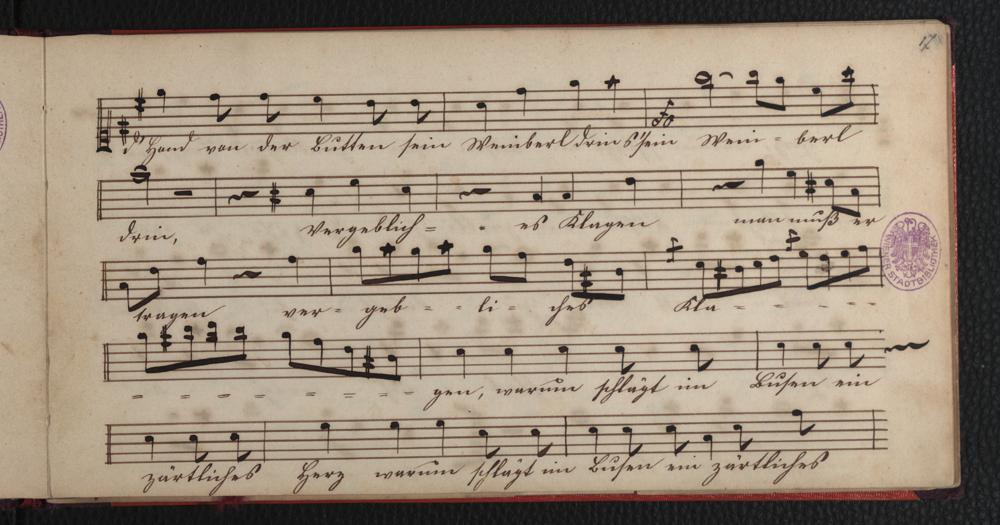 17
fo
d' Hand von der Butten sein Weinberl drin s'sein Wein - berl
drin, Vergeblich = - es Klagen man muß er
tragen ver - geb - - li - ches Kla - - - - -
= - - - - = - - gen, warum schlägt im Busen ein
zärtliches Herz warum schlägt im Busen ein zärtliches
STADTBIBLIOTHEK